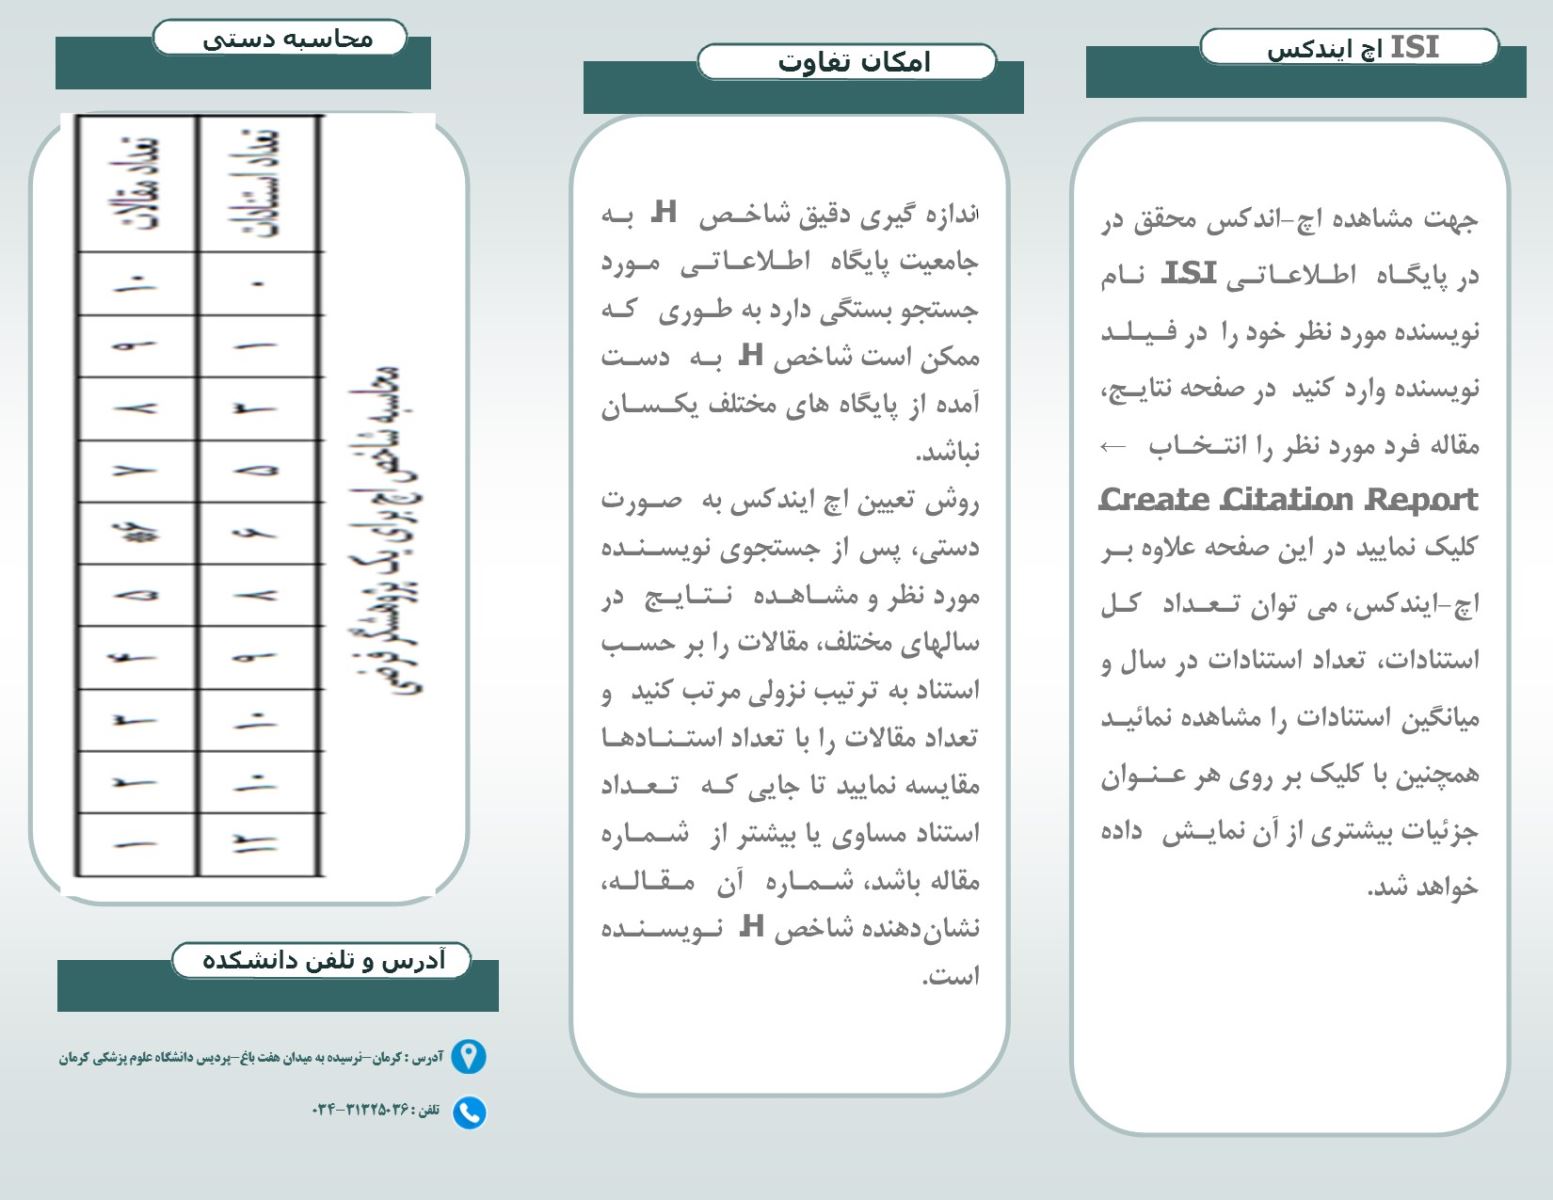 ISI اچ ایندکس
جهت مشاهده اچ-اندکس محقق در
در پایگاه اطلاعاتی ISI نام
نویسنده مورد نظر خود را در فیلد
نویسنده وارد کنید در صفحه نتایج،
مقاله فرد مورد نظر را انتخاب ←
Create Citation Report
کلیک نمایید در این صفحه علاوه بر
اچ-ایندکس، می توان تعداد کل
استنادات، تعداد استنادات در سال و
میانگین استنادات را مشاهده نمائید
همچنین با کلیک بر روی هر عنوان
جزئیات بیشتری از آن نمایش داده
خواهد شد.
امکان تفاوت
ندازه گیری دقیق شاخص H به
جامعیت پایگاه اطلاعاتی مورد
جستجو بستگی دارد به طوری که
ممکن است شاخص H به دست
آمده از پایگاه های مختلف یکسان
نباشد.
روش تعیین اچ ایندکس به صورت
دستی، پس از جستجوی نویسنده
مورد نظر و مشاهده نتایج در
سالهای مختلف، مقالات را بر حسب
استناد به ترتیب نزولی مرتب کنید و
تعداد مقالات را با تعداد استنادها
مقایسه نمایید تا جایی که تعداد
استناد مساوی یا بیشتر از شماره
مقاله باشد، شماره آن مقاله،
نشان‌دهنده شاخص H نویسنده
است.
محاسبه دستی
محاسبه شاخص اچ برای یک پژوهشگر فرضی
تعداد استنادات ۰ ۱ ۳ ۵ ۶ ۸ ۹ ۱۰ ۱۰ ۱۲
تعداد مقالات ۱۰ ۹ ۸ ۷ ۶* ۵ ۴ ۳ ۲ ۱
آدرس و تلفن دانشکده
آدرس : کرمان-نرسیده به میدان هفت باغ-پردیس دانشگاه علوم پزشکی کرمان
تلفن : ۳۱۳۲۵۰۳۶-۰۳۴